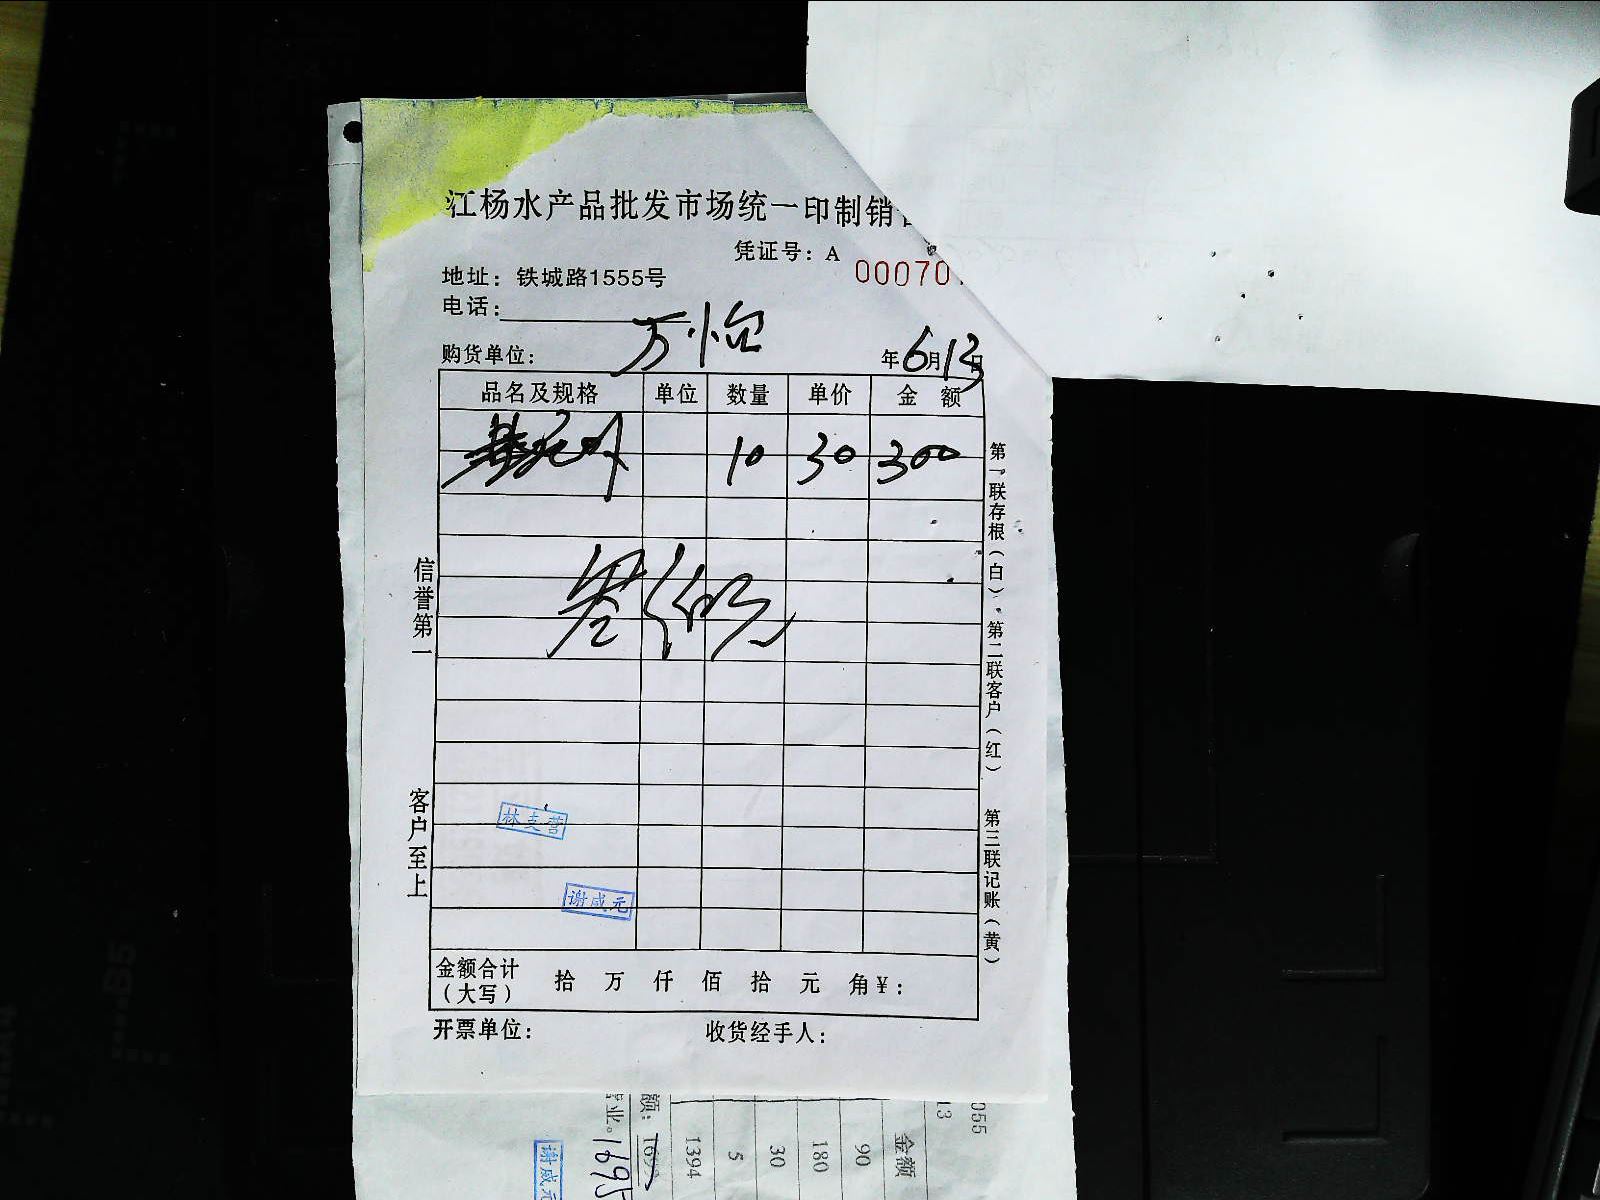 江杨水产品批发市场统一印制销
凭证号：A
00070
地址：铁城路1555号
电话：
购货单位：万怡
年6月13日
品名及规格 单位 数量 单价 金额
10 30 300
叁佰元
信誉第一
客户至上
第一联存根（白）．第二联客户（红） 第三联记账（黄）
谢咸元
金额合计（大写） 拾 万 仟 佰 拾 元 角 ¥：
开票单位： 收货经手人：
055
13
金额
90
180
30
5
1394
额：
业。1695
谢咸元